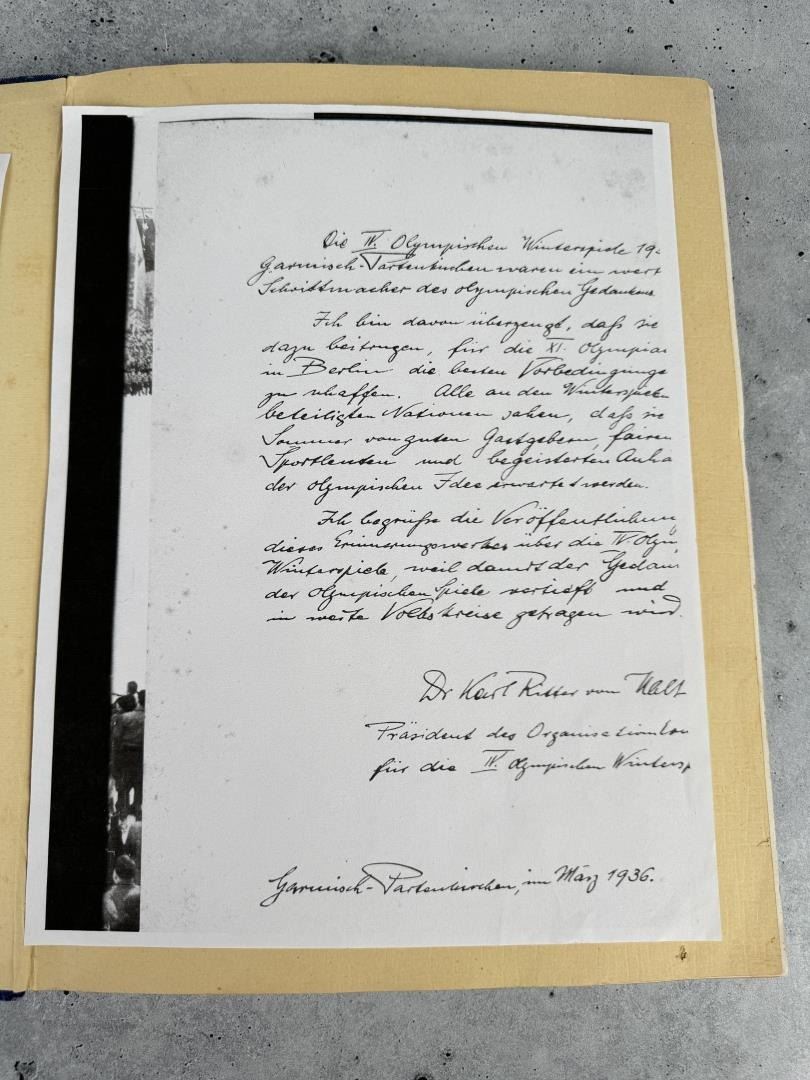 Die IV. Olympischen Winterspiele 19
Garmisch-Partenkirchen waren ein wert
Schrittmacher des olympischen Gedankens
Ich bin davon überzeugt, daß sie
dazu beitrugen, für die XI. Olympiad
in Berlin die besten Vorbedingunge
zu schaffen. Alle an den Winterspielen
beteiligten Nationen sahen, daß sie
Sommer von guten Gastgebern, fairen
Sportleuten und begeisterten Anhä
der olympischen Idee erwartet werden.
Ich begrüße die Veröffentlichun
dieses Erinnerungswerkes über die IV. Olym
Winterspiele, weil damit der Gedan
der olympischen Spiele vertieft und
in weite Volkskreise getragen wird.
Dr Karl Ritter von Halt
Präsident des Organisationko
für die IV. olympischen Wintersp
Garmisch-Partenkirchen, im März 1936.